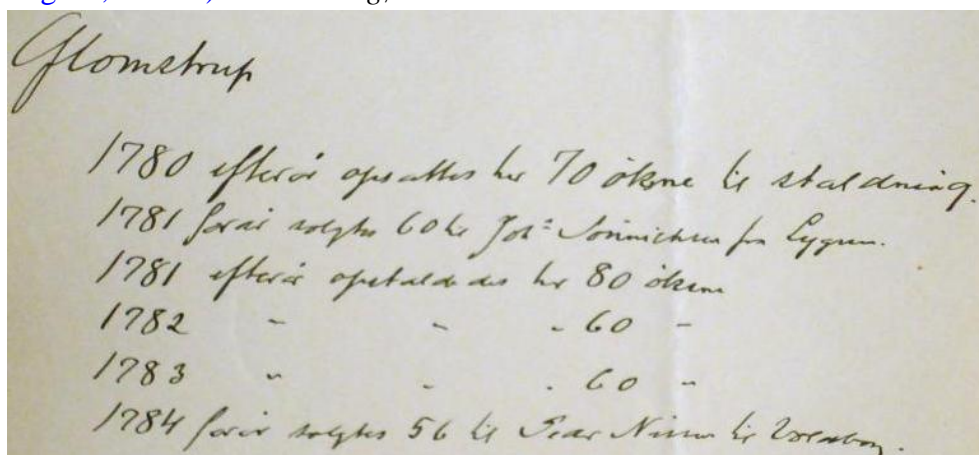 Glomstrup
1780 efterår opsattes her 70 öksne til staldning.
1781 forår solgtes 60 til Joh= Sönnichsen fra Lygum.
1781 efterår opstaldedes her 80 öksne
1782 " " " 60 "
1783 " " " 60 "
1784 forår solgtes 56 til Peder Nissen til